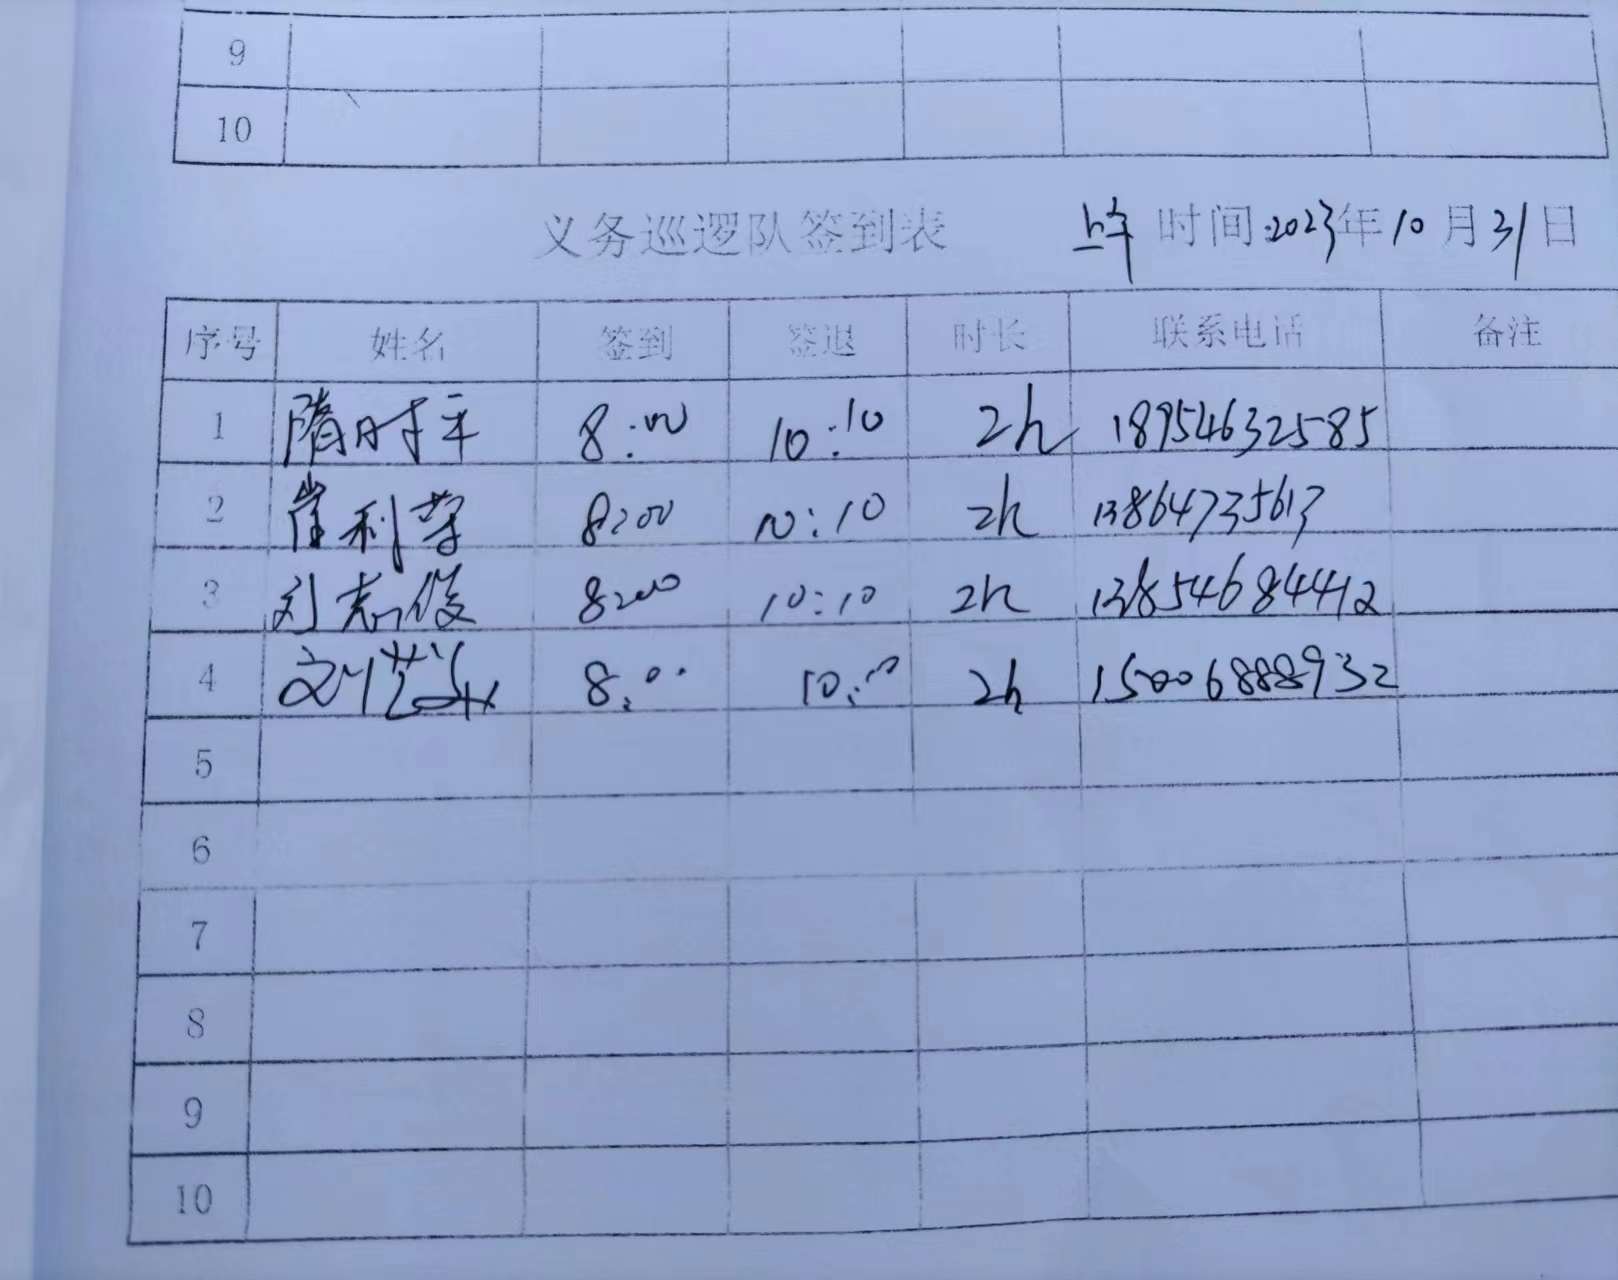 9
10
义务巡逻队签到表 上午 时间:2023年10月31日
序号 姓名 签到 签退 时长 联系电话 备注
1 隋时平 8:00 10:10 2h 18954632585
2 崔利芹 8:00 10:10 2h 13864735613
3 刘志俊 8:00 10:10 2h 13854684412
4 8:00 10:10 2h 15006888932
5
6
7
8
9
10